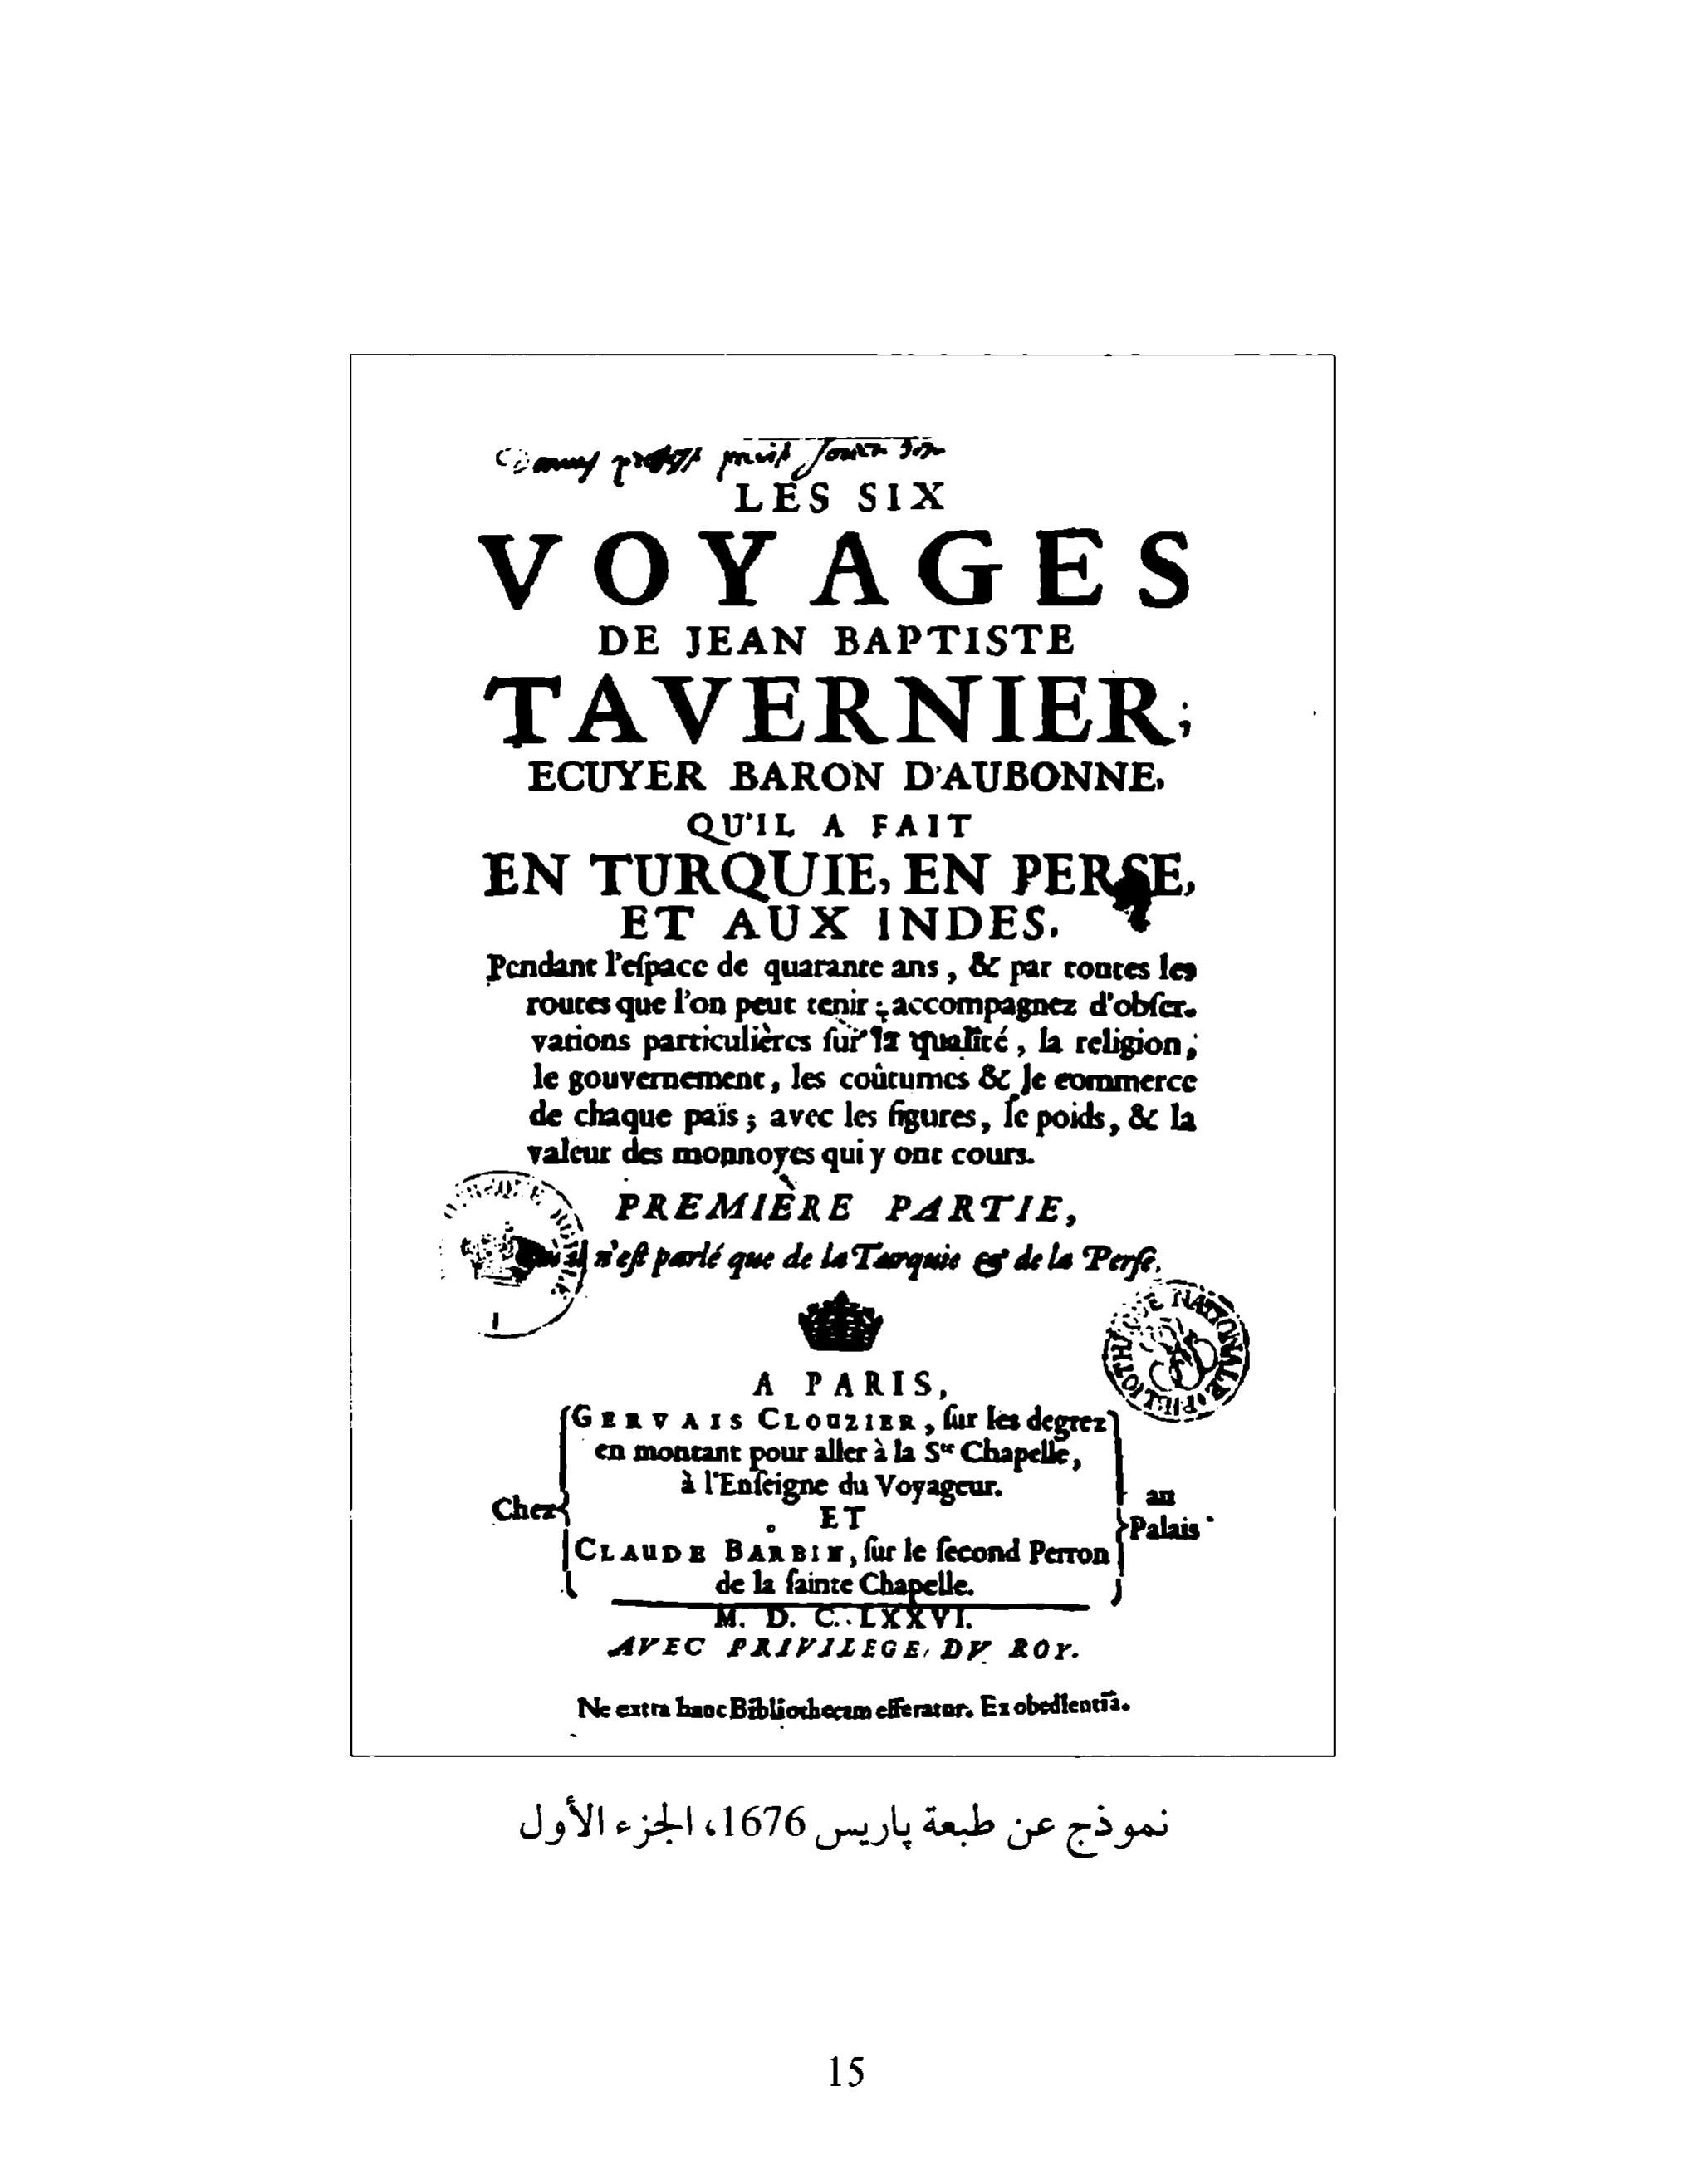 LES SIX
VOYAGES
DE JEAN BAPTISTE
TAVERNIER;
ECUYER BARON D'AUBONNE,
QU'IL A FAIT
EN TURQUIE, EN PERSE,
ET AUX INDES.
Pendant l'eſpace de quarante ans, & par toutes les
routes que l'on peut tenir; accompagnez d'obſer-
vations particulières ſur la qualité, la religion,
le gouvernement, les coûtumes & le commerce
de chaque païs; avec les figures, le poids, & la
valeur des monnoyes qui y ont cours.
PREMIÈRE PARTIE,
il n'eſt parlé que de la Turquie & de la Perſe.
BIBLIOTHEQUE NATIONALE
A PARIS,
Chez
GERVAIS CLOUZIER, ſur les degrez
en montant pour aller à la Ste Chapelle,
à l'Enſeigne du Voyageur.
ET
CLAUDE BARBIN, ſur le ſecond Perron
de la ſainte Chapelle.
au
Palais
M. D. C. LXXVI.
AVEC PRIVILEGE DV ROY.
Ne extra hanc Bibliothecam efferatur. Ex obedientiâ.
نموذج عن طبعة پاريس 1676، الجزء الأول
15